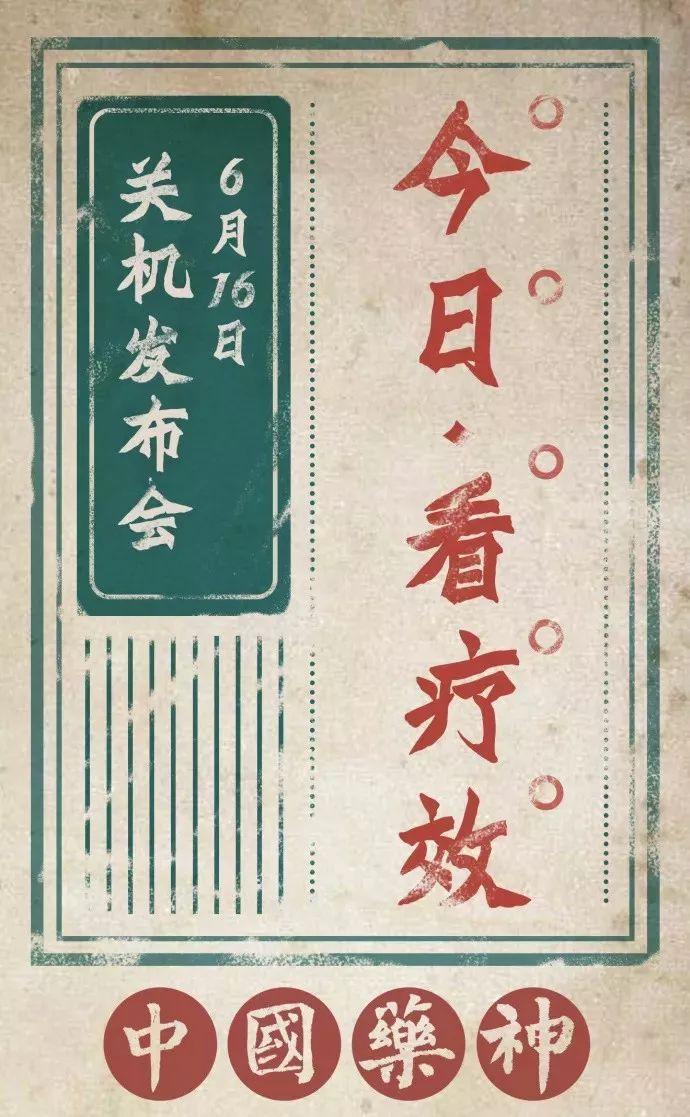 今日·看疗效
6月16日
关机发布会
中國藥神